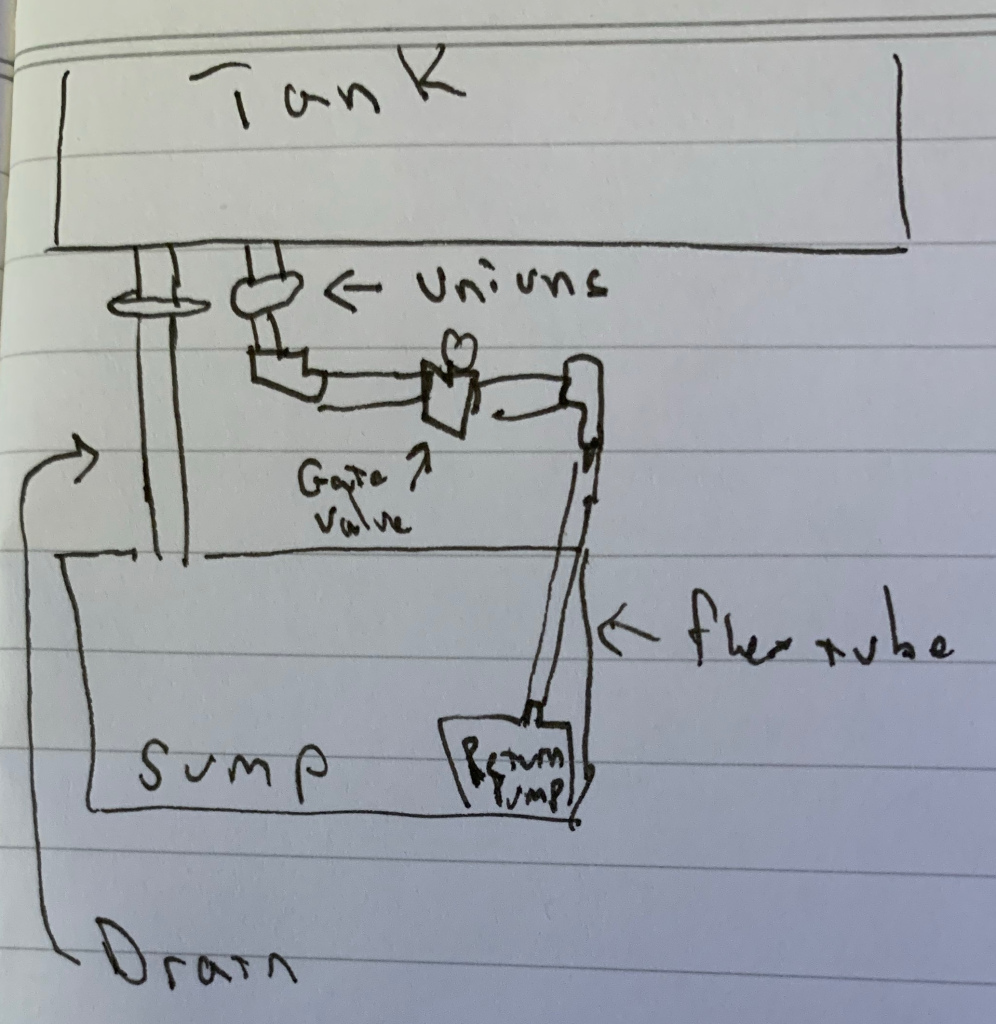 Tank
← Uniuns
Gate
Valve
← flex tube
Sump
Return
Pump
Drain